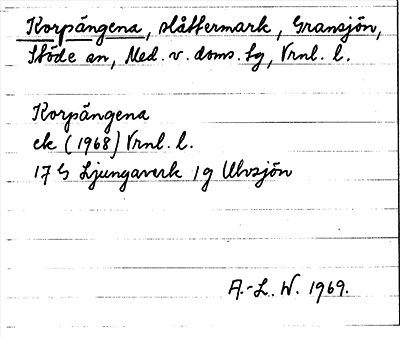 Korpängena, slåttermark, Gransjön,
Stöde sn, Med. v. doms. lg, Vrnl. l.
Korpängena
ek (1968) Vrnl. l.
17 G Ljungaverk 1g Ulvsjön
A.-L. W. 1969.